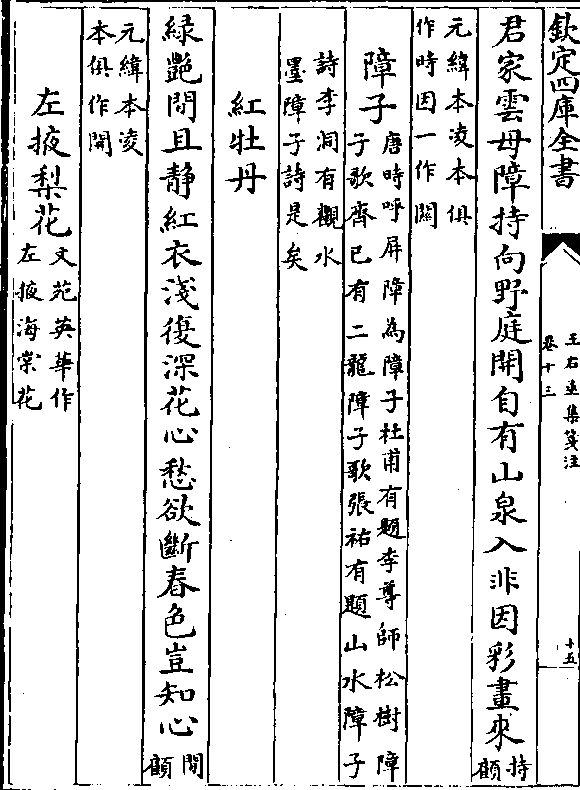 欽定四庫全書
王右丞集箋注
卷十三
十五
君家雲母障持向野庭開自有山泉入非因彩畫來持
顧
元緯本凌本俱
作時因一作關
障子唐時呼屏障為障子杜甫有題李尊師松樹障
子歌齊已有二龍障子歌張祐有題山水障子
詩李洞有觀水
墨障子詩是矣
紅牡丹
緑艷間且静紅衣淺復深花心愁欲斷春色豈知心間
顧
元緯本凌
本俱作開
左掖梨花文苑英華作
左掖海棠花